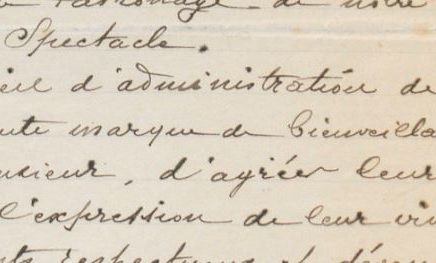 Patronage de notre
Spectacle.
d'administration de
marque de bienveilla
nsieur, d'agréer leur
l'expression de leur
respectueux et